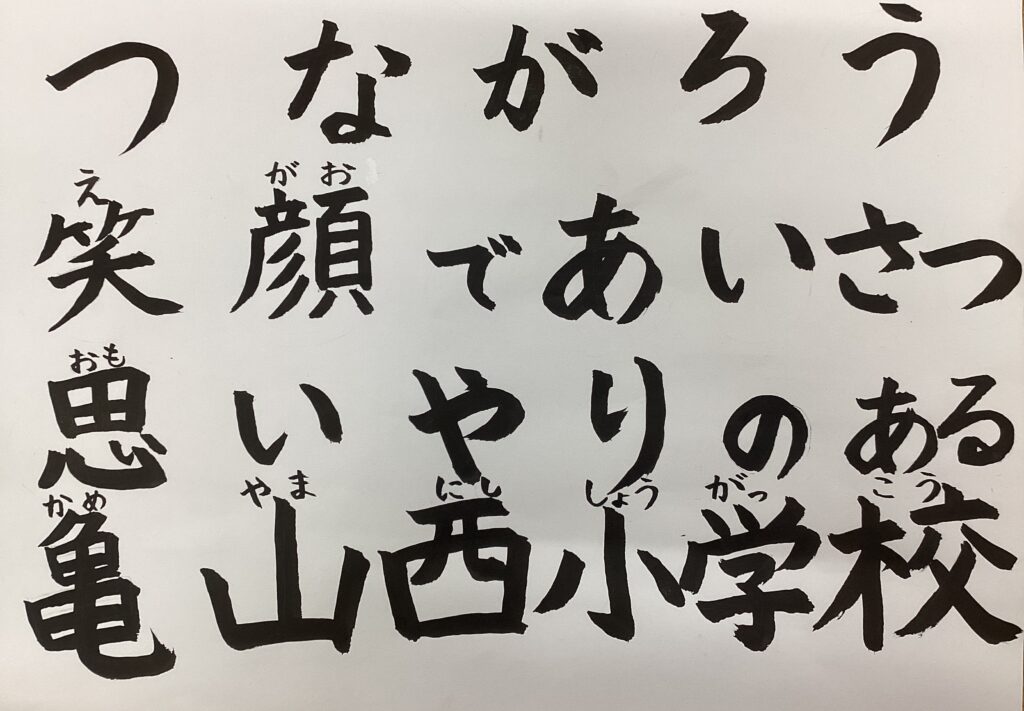 つながろう
えがお
笑顔であいさつ
おも
思いやりのある
かめやまにししょうがっこう
亀山西小学校